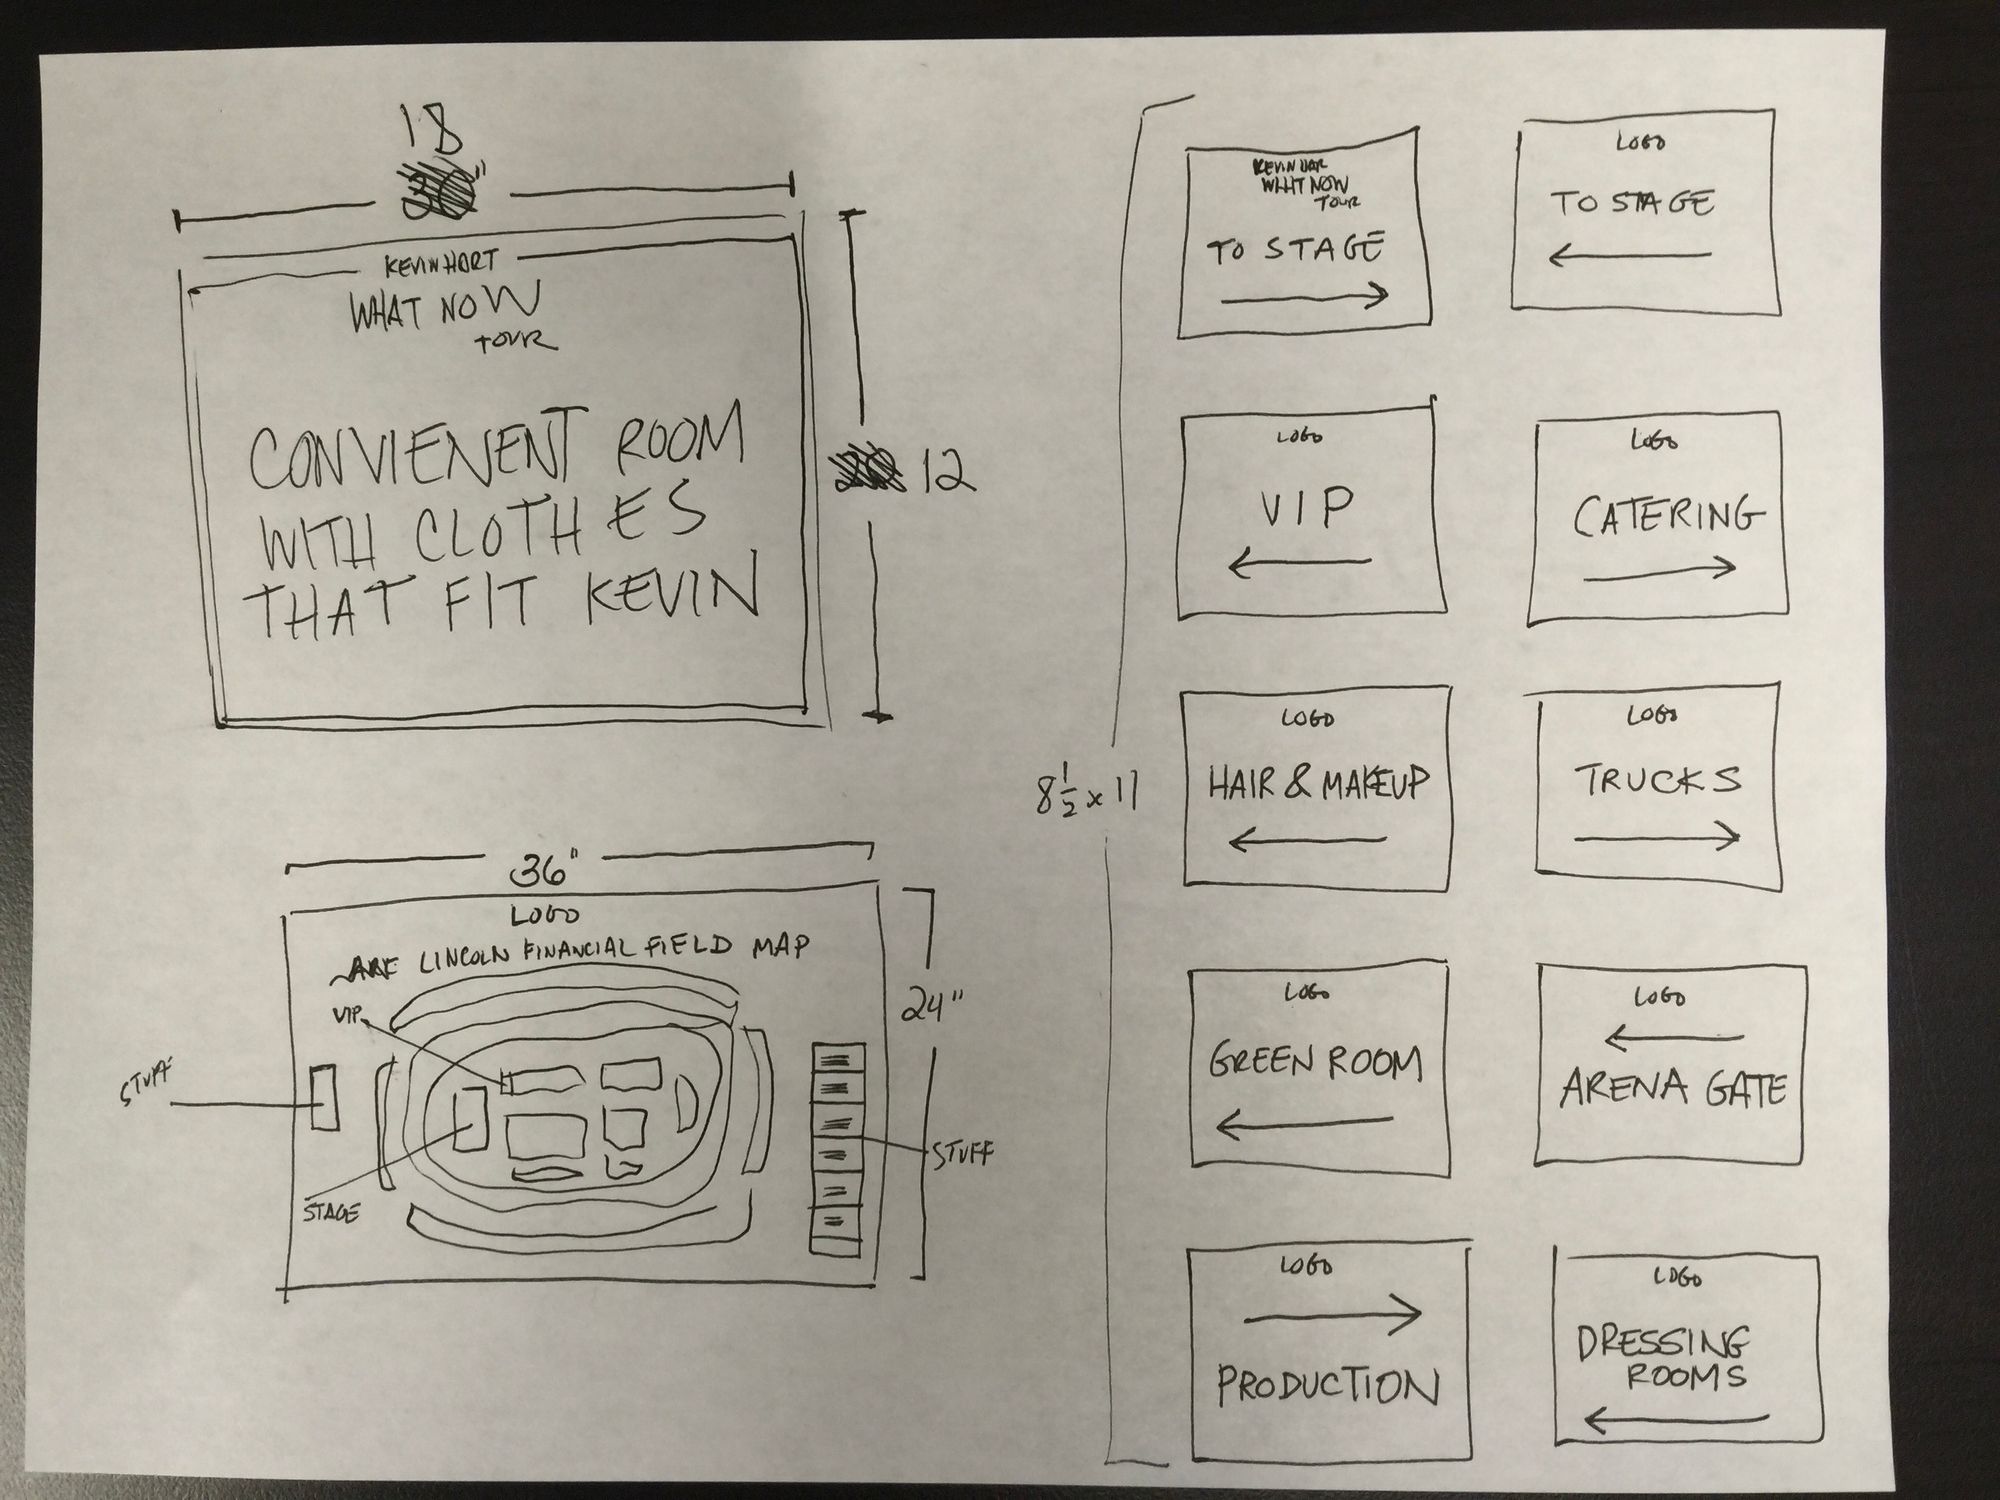 18
30"
KEVIN HART
WHAT NOW
TOUR
CONVIENENT ROOM
WITH CLOTHES
THAT FIT KEVIN
12
36"
LOGO
LINCOLN FINANCIAL FIELD MAP
VIP
STUFF
STAGE
24"
STUFF
8 1/2 x 11
KEVIN HAR
WHAT NOW
TOUR
TO STAGE
LOGO
TO STAGE
LOGO
VIP
LOGO
CATERING
LOGO
HAIR & MAKEUP
LOGO
TRUCKS
LOGO
GREEN ROOM
LOGO
ARENA GATE
LOGO
PRODUCTION
LOGO
DRESSING
ROOMS